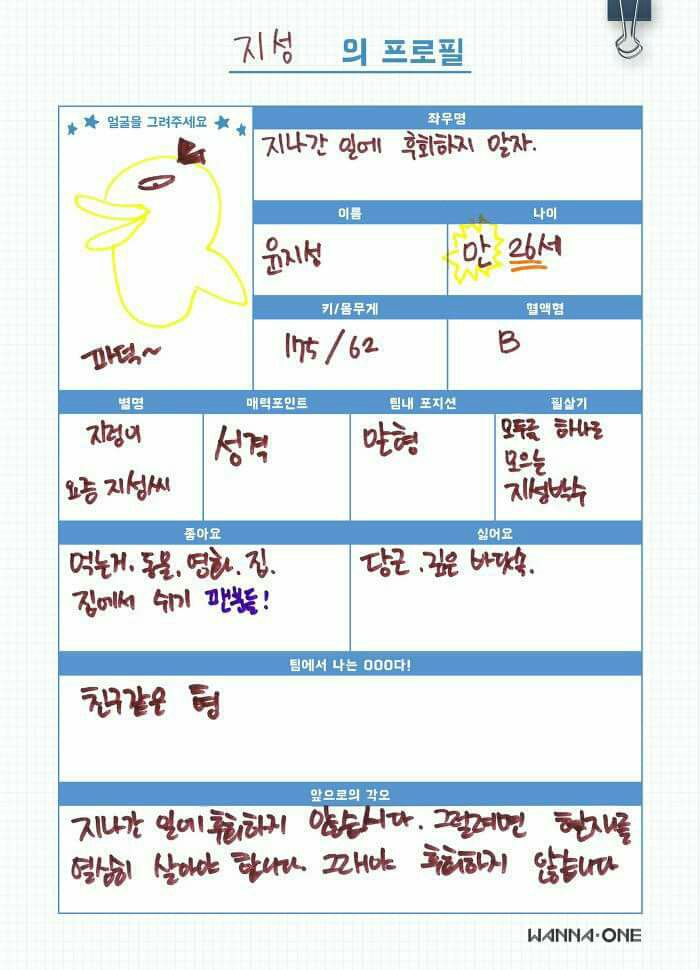 지성 의 프로필
얼굴을 그려주세요
파덕~
좌우명
지나간 일에 후회하지 말자.
이름
윤지성
나이
만 26세
키/몸무게
175/62
혈액형
B
별명
지렁이
요즘 지성씨
매력포인트
성격
팀내 포지션
맏형
필살기
모두를 하나로
모으는
지성박수
좋아요
먹는거. 동물. 영화. 집.
집에서 쉬기 팬분들!
싫어요
당근. 깊은 바닷속.
팀에서 나는 OOO다!
친구같은 형
앞으로의 각오
지나간 일에 후회하지 않습니다. 그럴려면 현재를
열심히 살아야 합니다. 그래야 후회하지 않습니다
WANNA·ONE